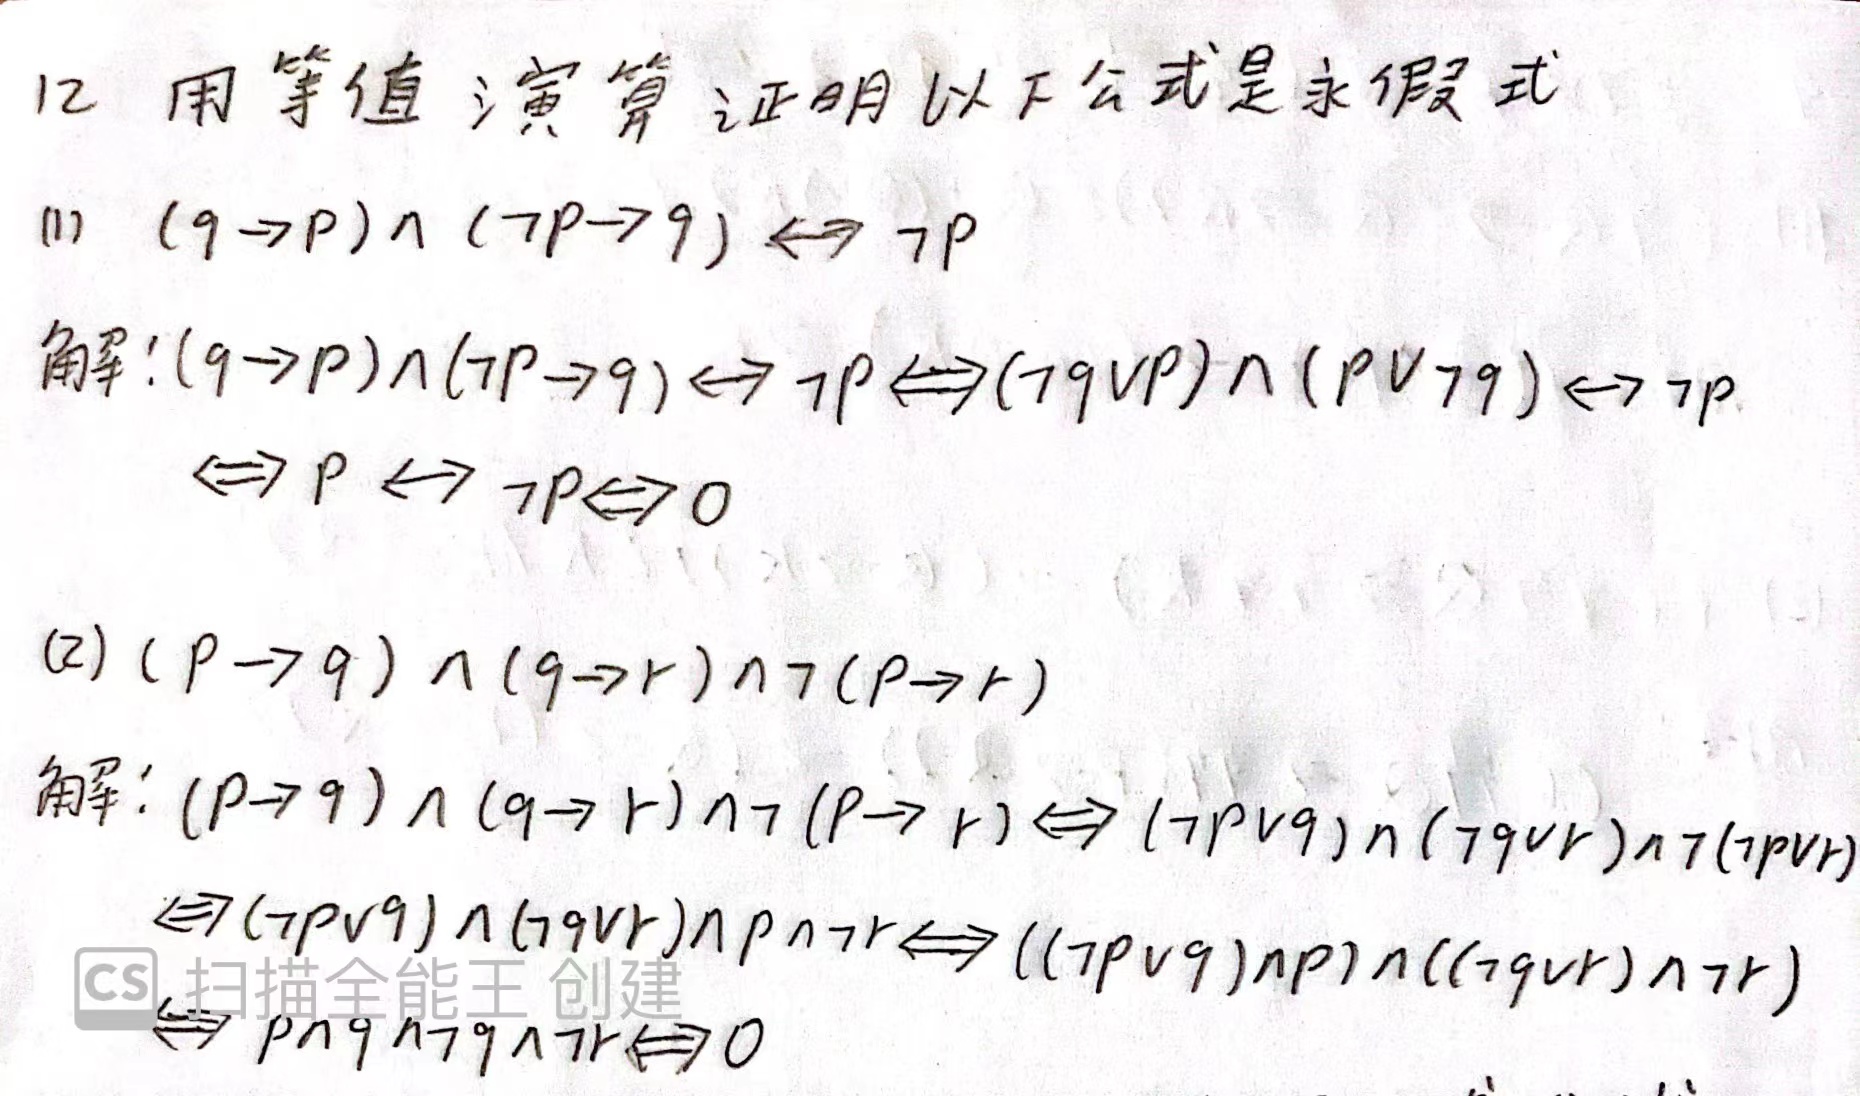 12 用等值演算证明以下公式是永假式
(1) (q→p)∧(¬p→q)↔¬p
解:(q→p)∧(¬p→q)↔¬p⇔(¬q∨p)∧(p∨¬q)↔¬p
⇔p↔¬p⇔0
(2) (p→q)∧(q→r)∧¬(p→r)
解:(p→q)∧(q→r)∧¬(p→r)⇔(¬p∨q)∧(¬q∨r)∧¬(¬p∨r)
⇔(¬p∨q)∧(¬q∨r)∧p∧¬r⇔((¬p∨q)∧p)∧((¬q∨r)∧¬r)
CS 扫描全能王 创建
⇔p∧q∧¬q∧¬r⇔0